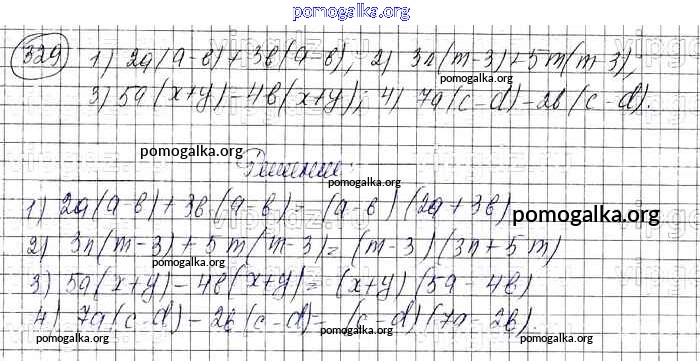 pomogalka.org
329 1) 2a(a-в)+3в(a-в); 2) 3n(m-3)+5m(m-3);
pomogalka.org
3) 5a(x+y)-4в(x+y); 4) 7a(c-d)-2в(c-d).
pomogalka.org
pomogalka.org Решение:
1) 2a(a-в)+3в(a-в)=(a-в)(2a+3в) pomogalka.org
2) 3n(m-3)+5m(m-3)=(m-3)(3n+5m)
pomogalka.org
3) 5a(x+y)-4в(x+y)=(x+y)(5a-4в)
4) 7a(c-d)-2в(c-d)=(c-d)(7a-2в).
pomogalka.org pomogalka.org